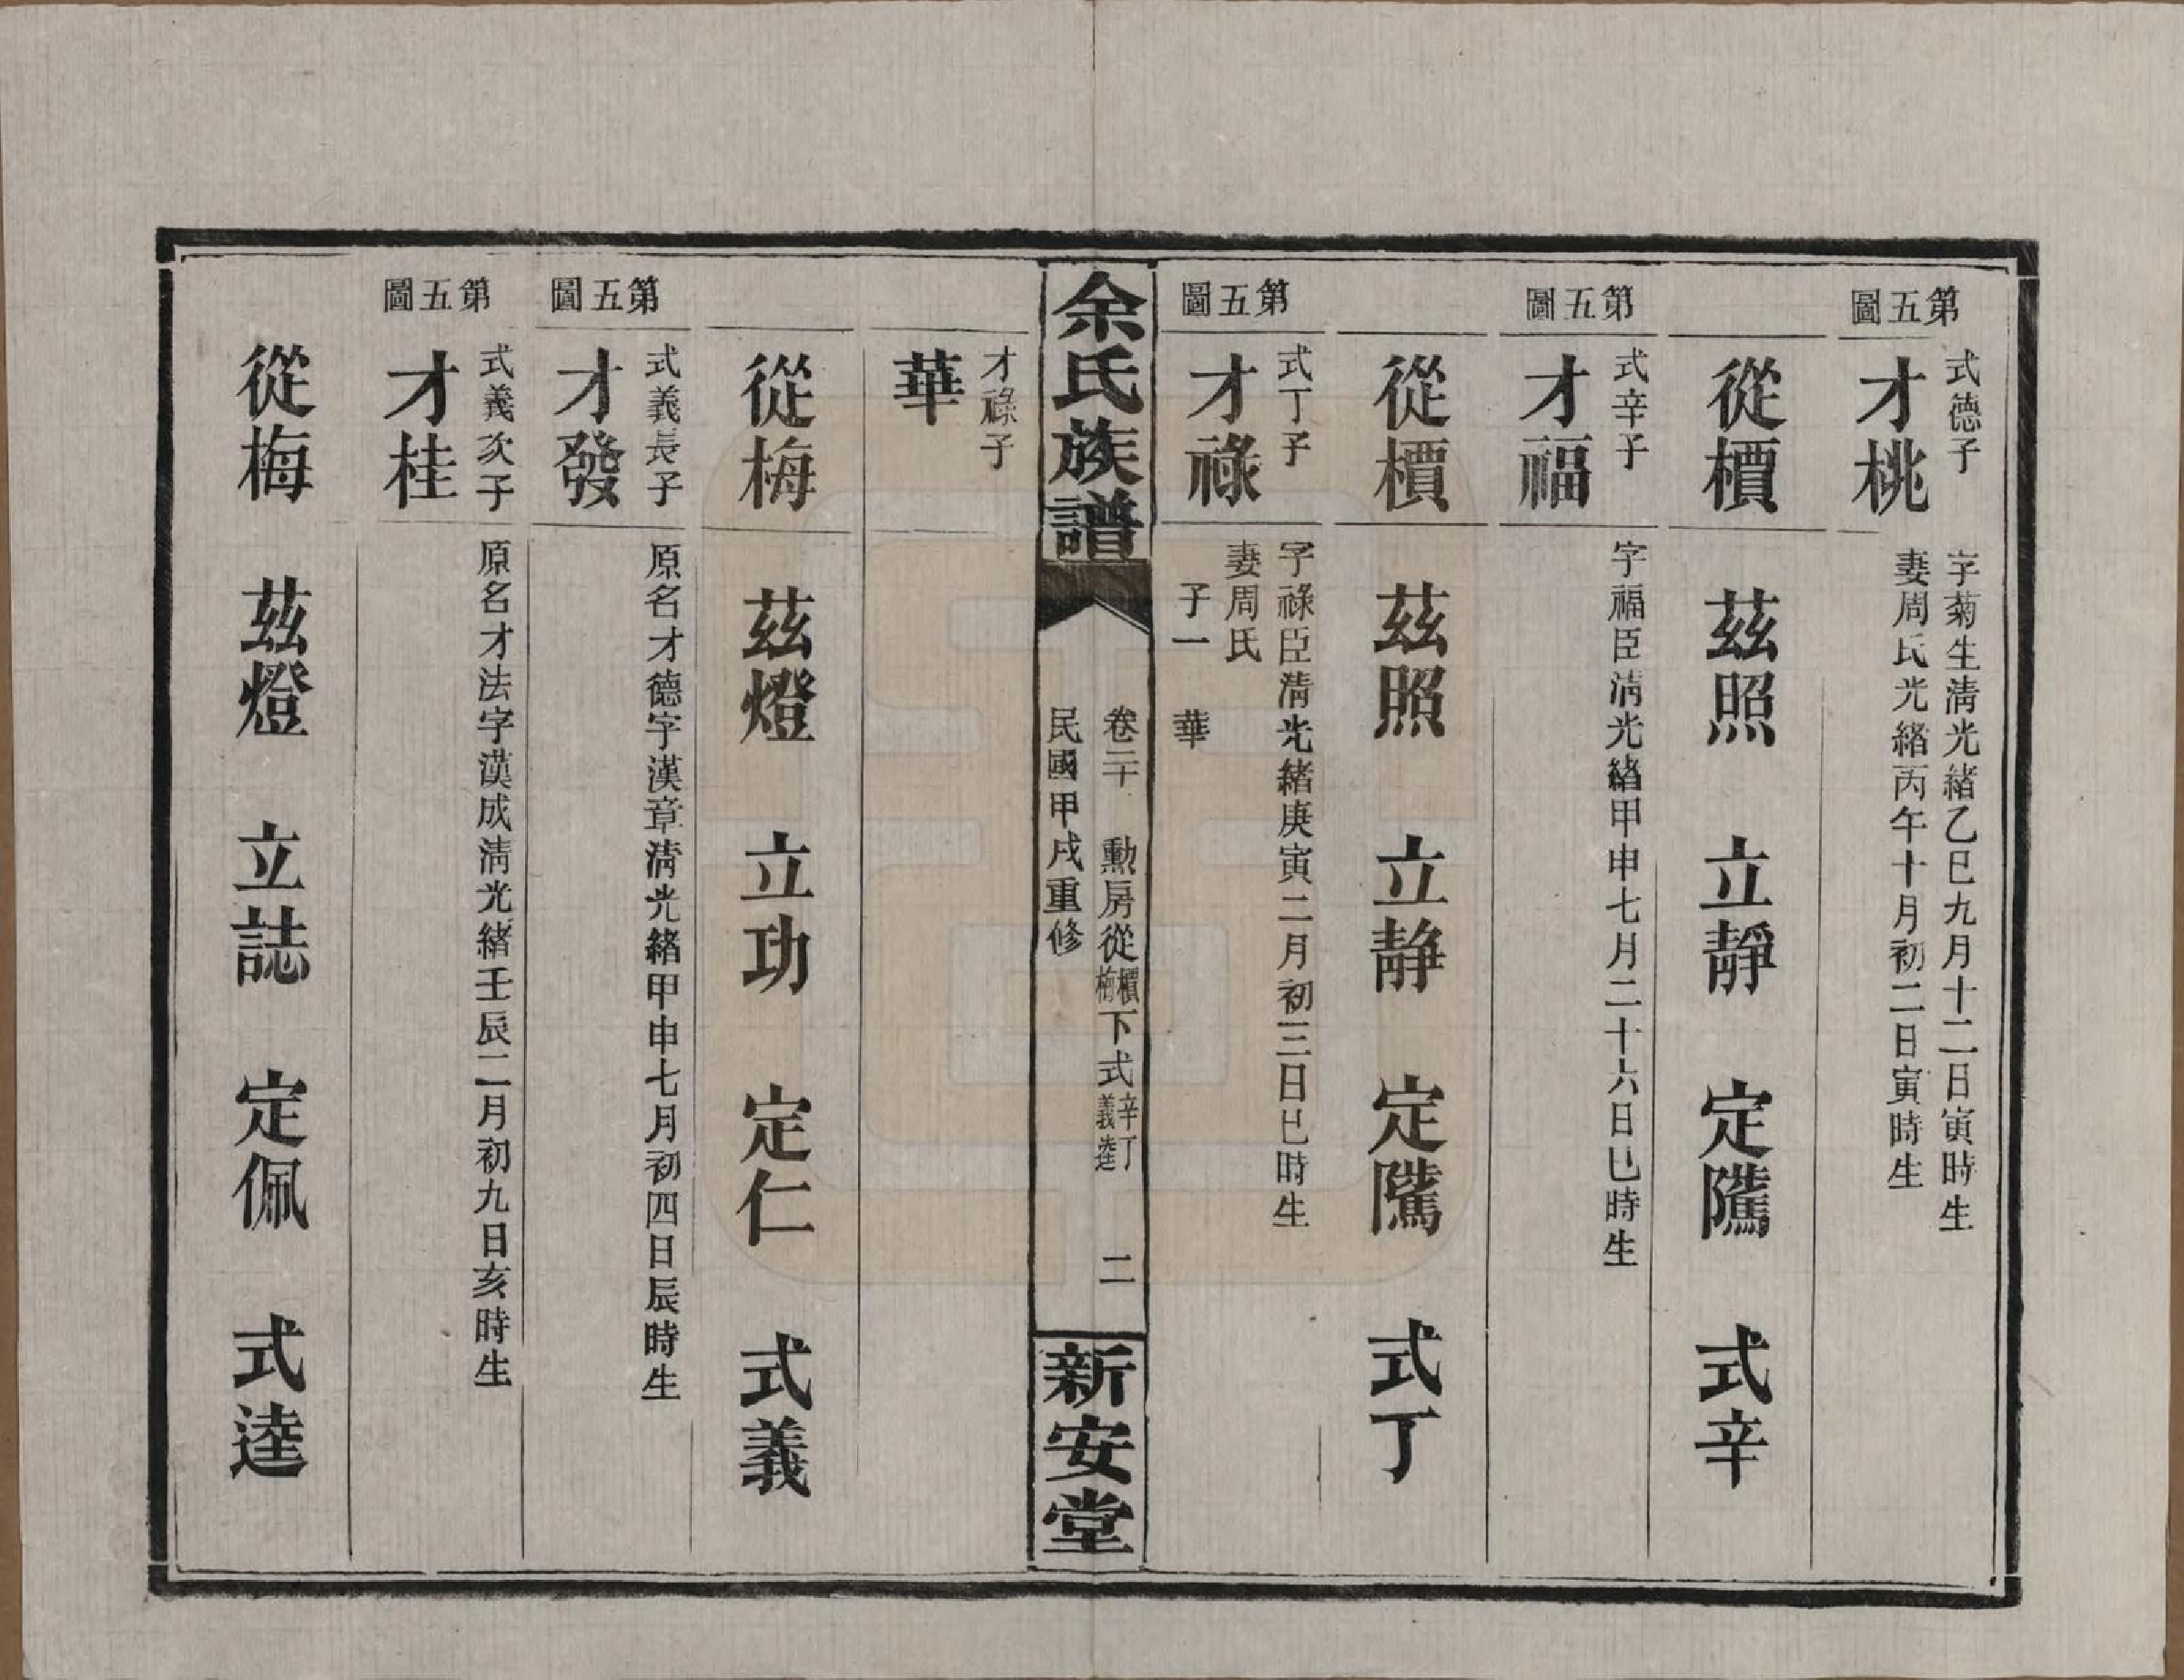 第五圖
式德子
才桃
字菊生清光緒乙巳九月十二日寅時生
妻周氏光緒丙午十月初二日寅時生
從檟　茲照　立靜　定隲　式辛
第五圖
式辛子
才福
字福臣清光緒甲申七月二十六日巳時生
從檟　茲照　立静　定隲　式丁
第五圖
式丁子
才祿
字祿臣清光緒庚寅二月初三日巳時生
妻周氏
子一　華
余氏族譜
卷二十　勳房從檟梅下式辛丁義逵　二
民國甲戌重修
新安堂
才祿子
華
從梅　茲燈　立功　定仁　式義
第五圖
式義長子
才發
原名才德字漢章清光緒甲申七月初四日辰時生
第五圖
式義次子
才桂
原名才法字漢成清光緒壬辰二月初九日亥時生
從梅　茲燈　立誌　定佩　式逵